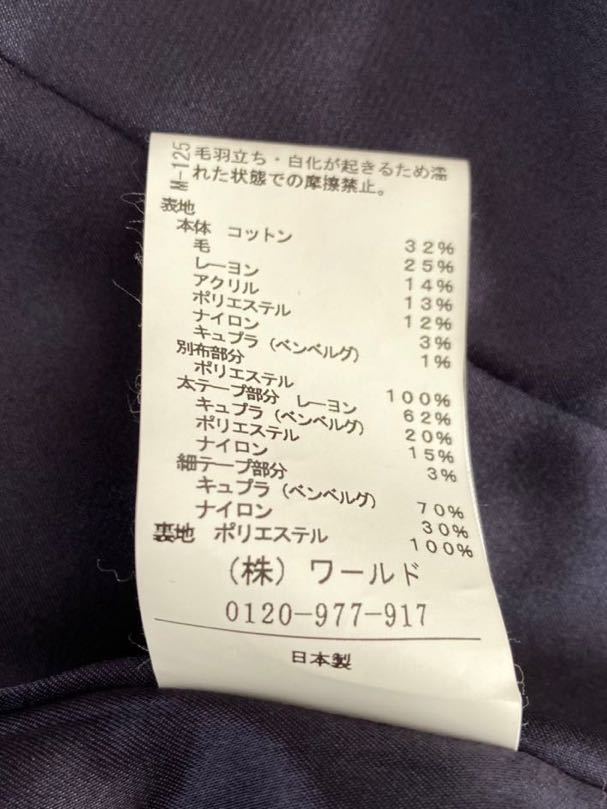 M-125
毛羽立ち・白化が起きるため濡
れた状態での摩擦禁止。
表地
本体 コットン 32%
毛 25%
レーヨン 14%
アクリル 13%
ポリエステル 12%
ナイロン 3%
キュプラ(ベンベルグ) 1%
別布部分
ポリエステル 100%
太テープ部分 レーヨン 62%
キュプラ(ベンベルグ) 20%
ポリエステル 15%
ナイロン 3%
細テープ部分
キュプラ(ベンベルグ) 70%
ナイロン 30%
裏地 ポリエステル 100%
(株)ワールド
0120-977-917
日本製